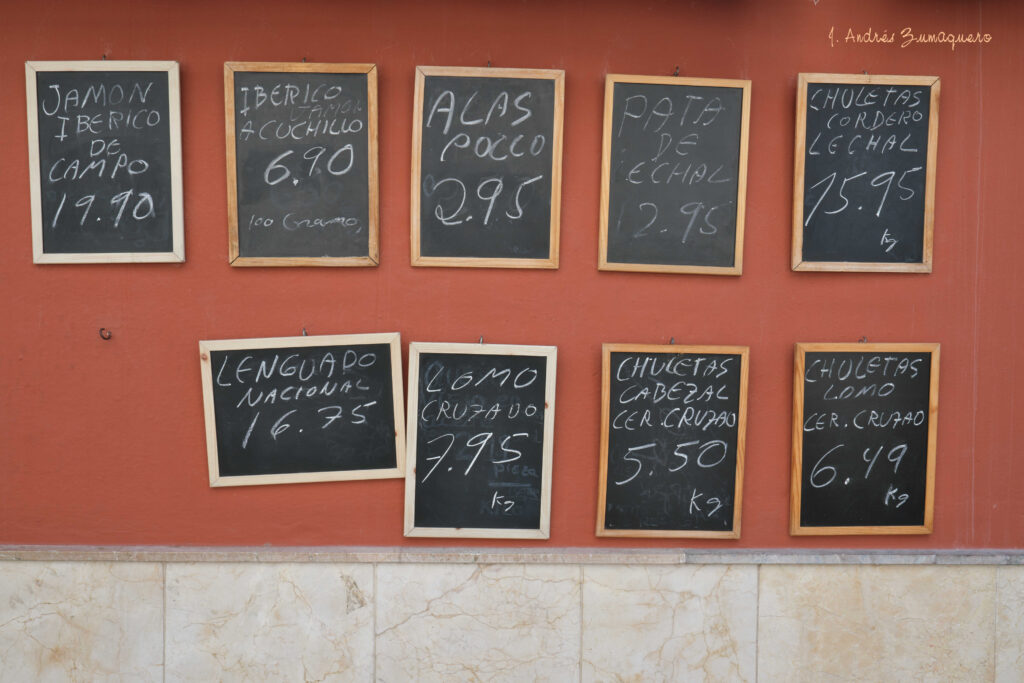 J. Andrés Zumaquero
JAMON
IBERICO
DE
CAMPO
19.90
IBERICO
JAMON
A CUCHILLO
6.90
100 Gramo,
ALAS
POLLO
2.95
PATA
DE
LECHAL
12.95
CHULETAS
CORDERO
LECHAL
15.95
Kg
LENGUADO
NACIONAL
16.75
LOMO
CRUZADO
7.95
pieza
Kg
CHULETAS
CABEZAL
CER.CRUZAO
5.50
Kg
CHULETAS
LOMO
CER.CRUZAO
6.49
Kg